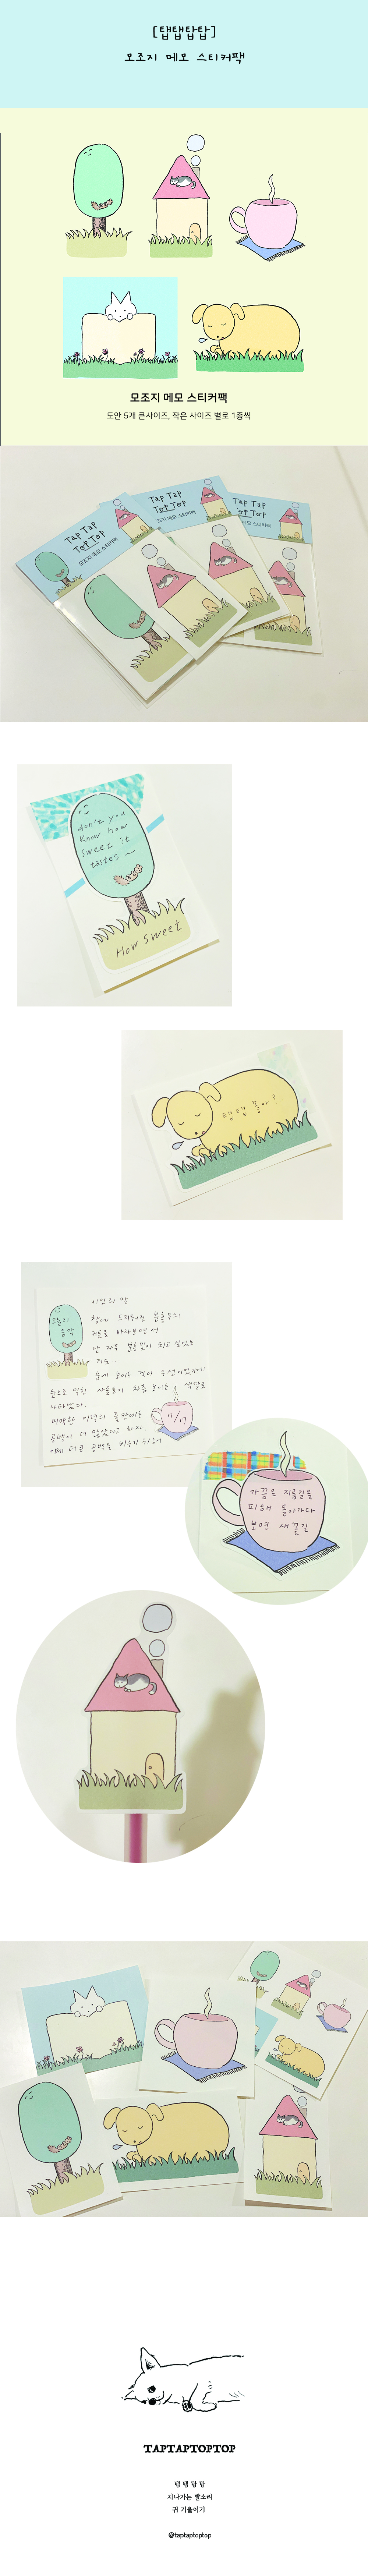 [탭탭탑탑]
모조지 메모 스티커팩
모조지 메모 스티커팩
도안 5개 큰사이즈, 작은 사이즈 별로 1종씩
Tap Tap
Top Top
모조지 메모 스티커팩
Tap Tap
Top Top
모조지 메모 스티커팩
Tap Tap
Top Top
모조지 메모 스티커팩
don't you
know how
sweet it
tastes~
How sweet
탭탭 좋아?
오늘의
음악
시인의 말
7/17
가끔은 지름길을
피해 돌아가다
보면 새 꽃길
TAPTAPTOPTOP
탭 탭 탑 탑
지나가는 발소리
귀 기울이기
@taptaptoptop